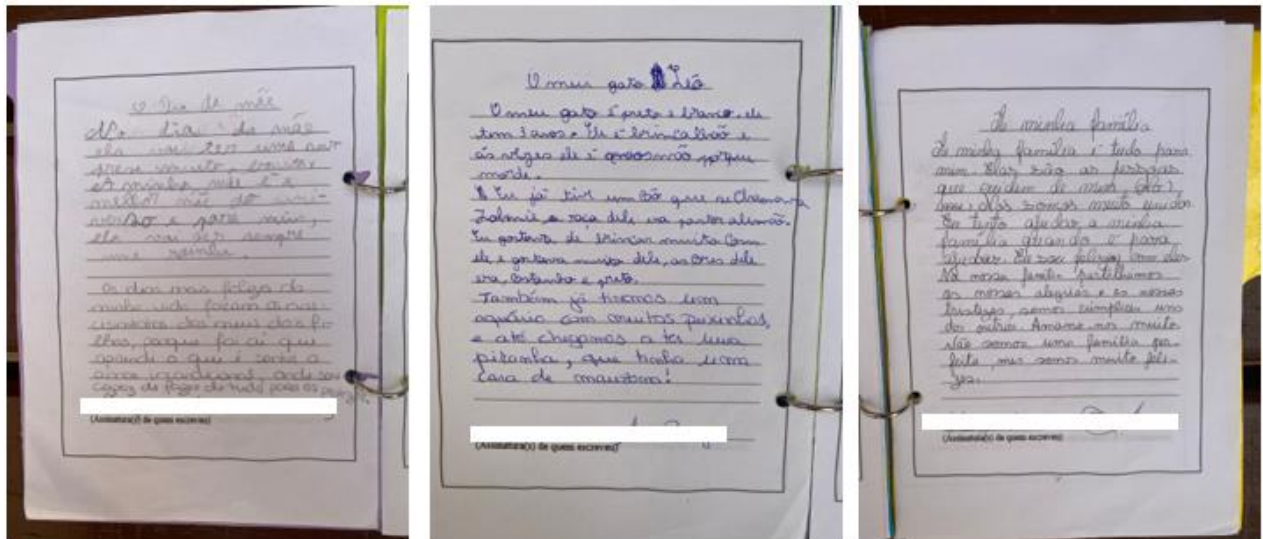 O Dia da mãe
No dia da mãe
ela vai ter uma sur
presa muito bonita.
A minha mãe é a
melhor mãe do uni
verso e para mim,
ela vai ser sempre
uma rainha.
Os dias mais felizes da
minha vida foram os nas-
cimentos dos meus dois fi-
lhos, porque foi aí que
aprendi o que é sentir o
amor incondicional, onde sou
capaz de fazer de tudo para os
(Assinatura(s) de quem escreveu)
O meu gato Leo
O meu gato é preto e branco, ele
tem 3 anos. Ele é brincalhão e
ás vezes ele é mão porque
morde.
Eu já tive um cão que se chamava
a raça dele era pastor alemão.
Eu gostava de brincar muito com
ele e gostava muito dele, as cores dele
era, castanho e preto.
Também já tivemos um
aquário com muitos peixinhos,
e até chegamos a ter uma
piranha, que tinha uma
cara de mauzona!
(Assinatura(s) de quem escreveu)
A minha família
A minha família é tudo para
mim. Elas são as pessoas
que cuidam de mim,
nós somos muito unidos
Eu tento ajudar a minha
família quando é para
ajudar. Eu sou feliz com eles
Na nossa família partilhamos
as nossas alegrias e as nossas
tristezas, somos cúmplices uns
dos outros. Amamo-nos muito
Não somos uma família per-
feita, mas somos muito feli-
zes.
(Assinatura(s) de quem escreveu)